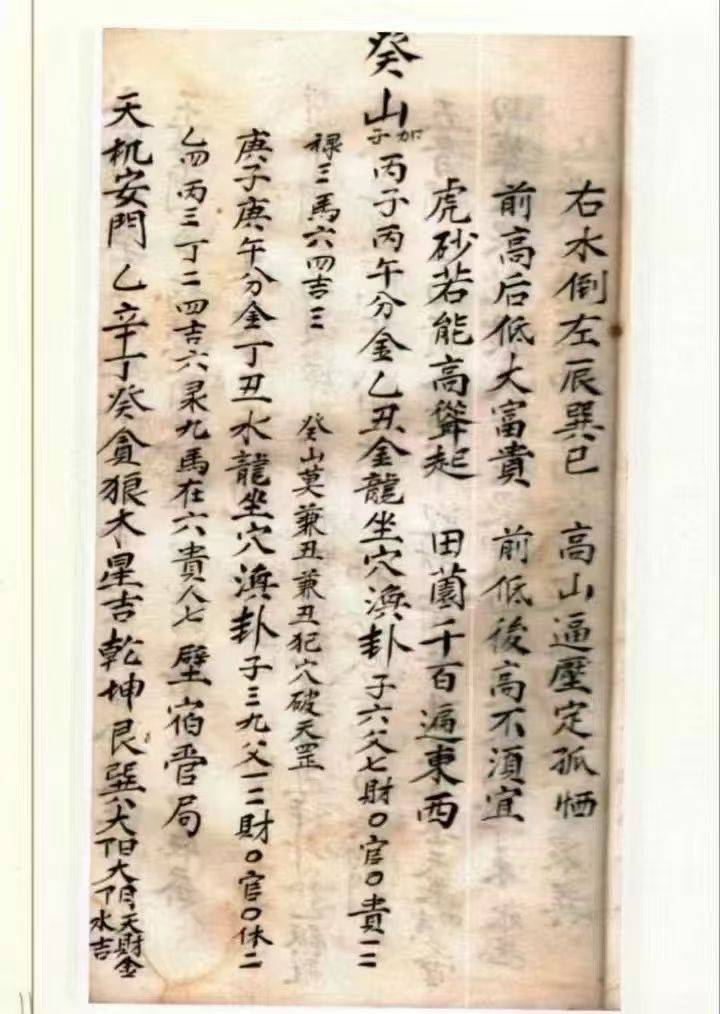 右水倒左辰巽巳　高山逼壓定孤恓
前高后低大富貴　前低後高不須宜
虎砂若能高聳起　田薗千百遍東西
癸山加子丙子丙午分金乙丑金龍坐穴渙卦子六父七財〇官〇貴一二
禄三馬六四吉三　癸山莫兼丑兼丑犯穴破天罡
庚子庚午分金丁丑水龍坐穴渙卦子三九父一二財〇官〇休二
乙四丙三丁二四吉六泉九馬在六貴人七壁宿管局
天机安門乙辛丁癸貪狼木星吉乾坤艮巽大天財金水吉